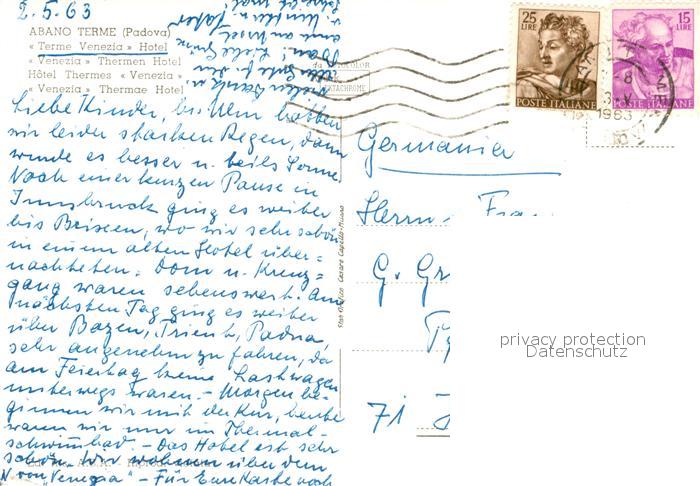 2.5.63
ABANO TERME (Padova)
« Terme Venezia » Hotel
« Venezia » Thermen Hotel
Hôtel Thermes « Venezia »
« Venezia » Thermae Hotel
Liebe Kinder, bis Ulm hatten
wir leider starken Regen, dann
wurde es besser u. teils Sonne
Nach einer kurzen Pause in
Innsbruck ging es weiter
bis Brixen, wo wir sehr schön
in einem alten Hotel über=
nachteten. Dom u. Kreuz=
gang waren sehenswert. Am
nächsten Tag ging es weiter
über Bozen, Trient, Padua,
sehr angenehm zu fahren, da
am Feiertag keine Lastwagen
unterwegs waren. - Morgen be-
ginnen wir mit der Kur, heute
waren wir nur im Thermal-
schwimmbad. - Das Hotel ist sehr
schön. Wir wohnen über dem
N von "Venezia" - Für Eure Karte noch
25
LIRE
POSTE ITALIANE
15
LIRE
POSTE ITALIANE
1963
Germania
Herrn
G. Gr
71
privacy protection
Datenschutz